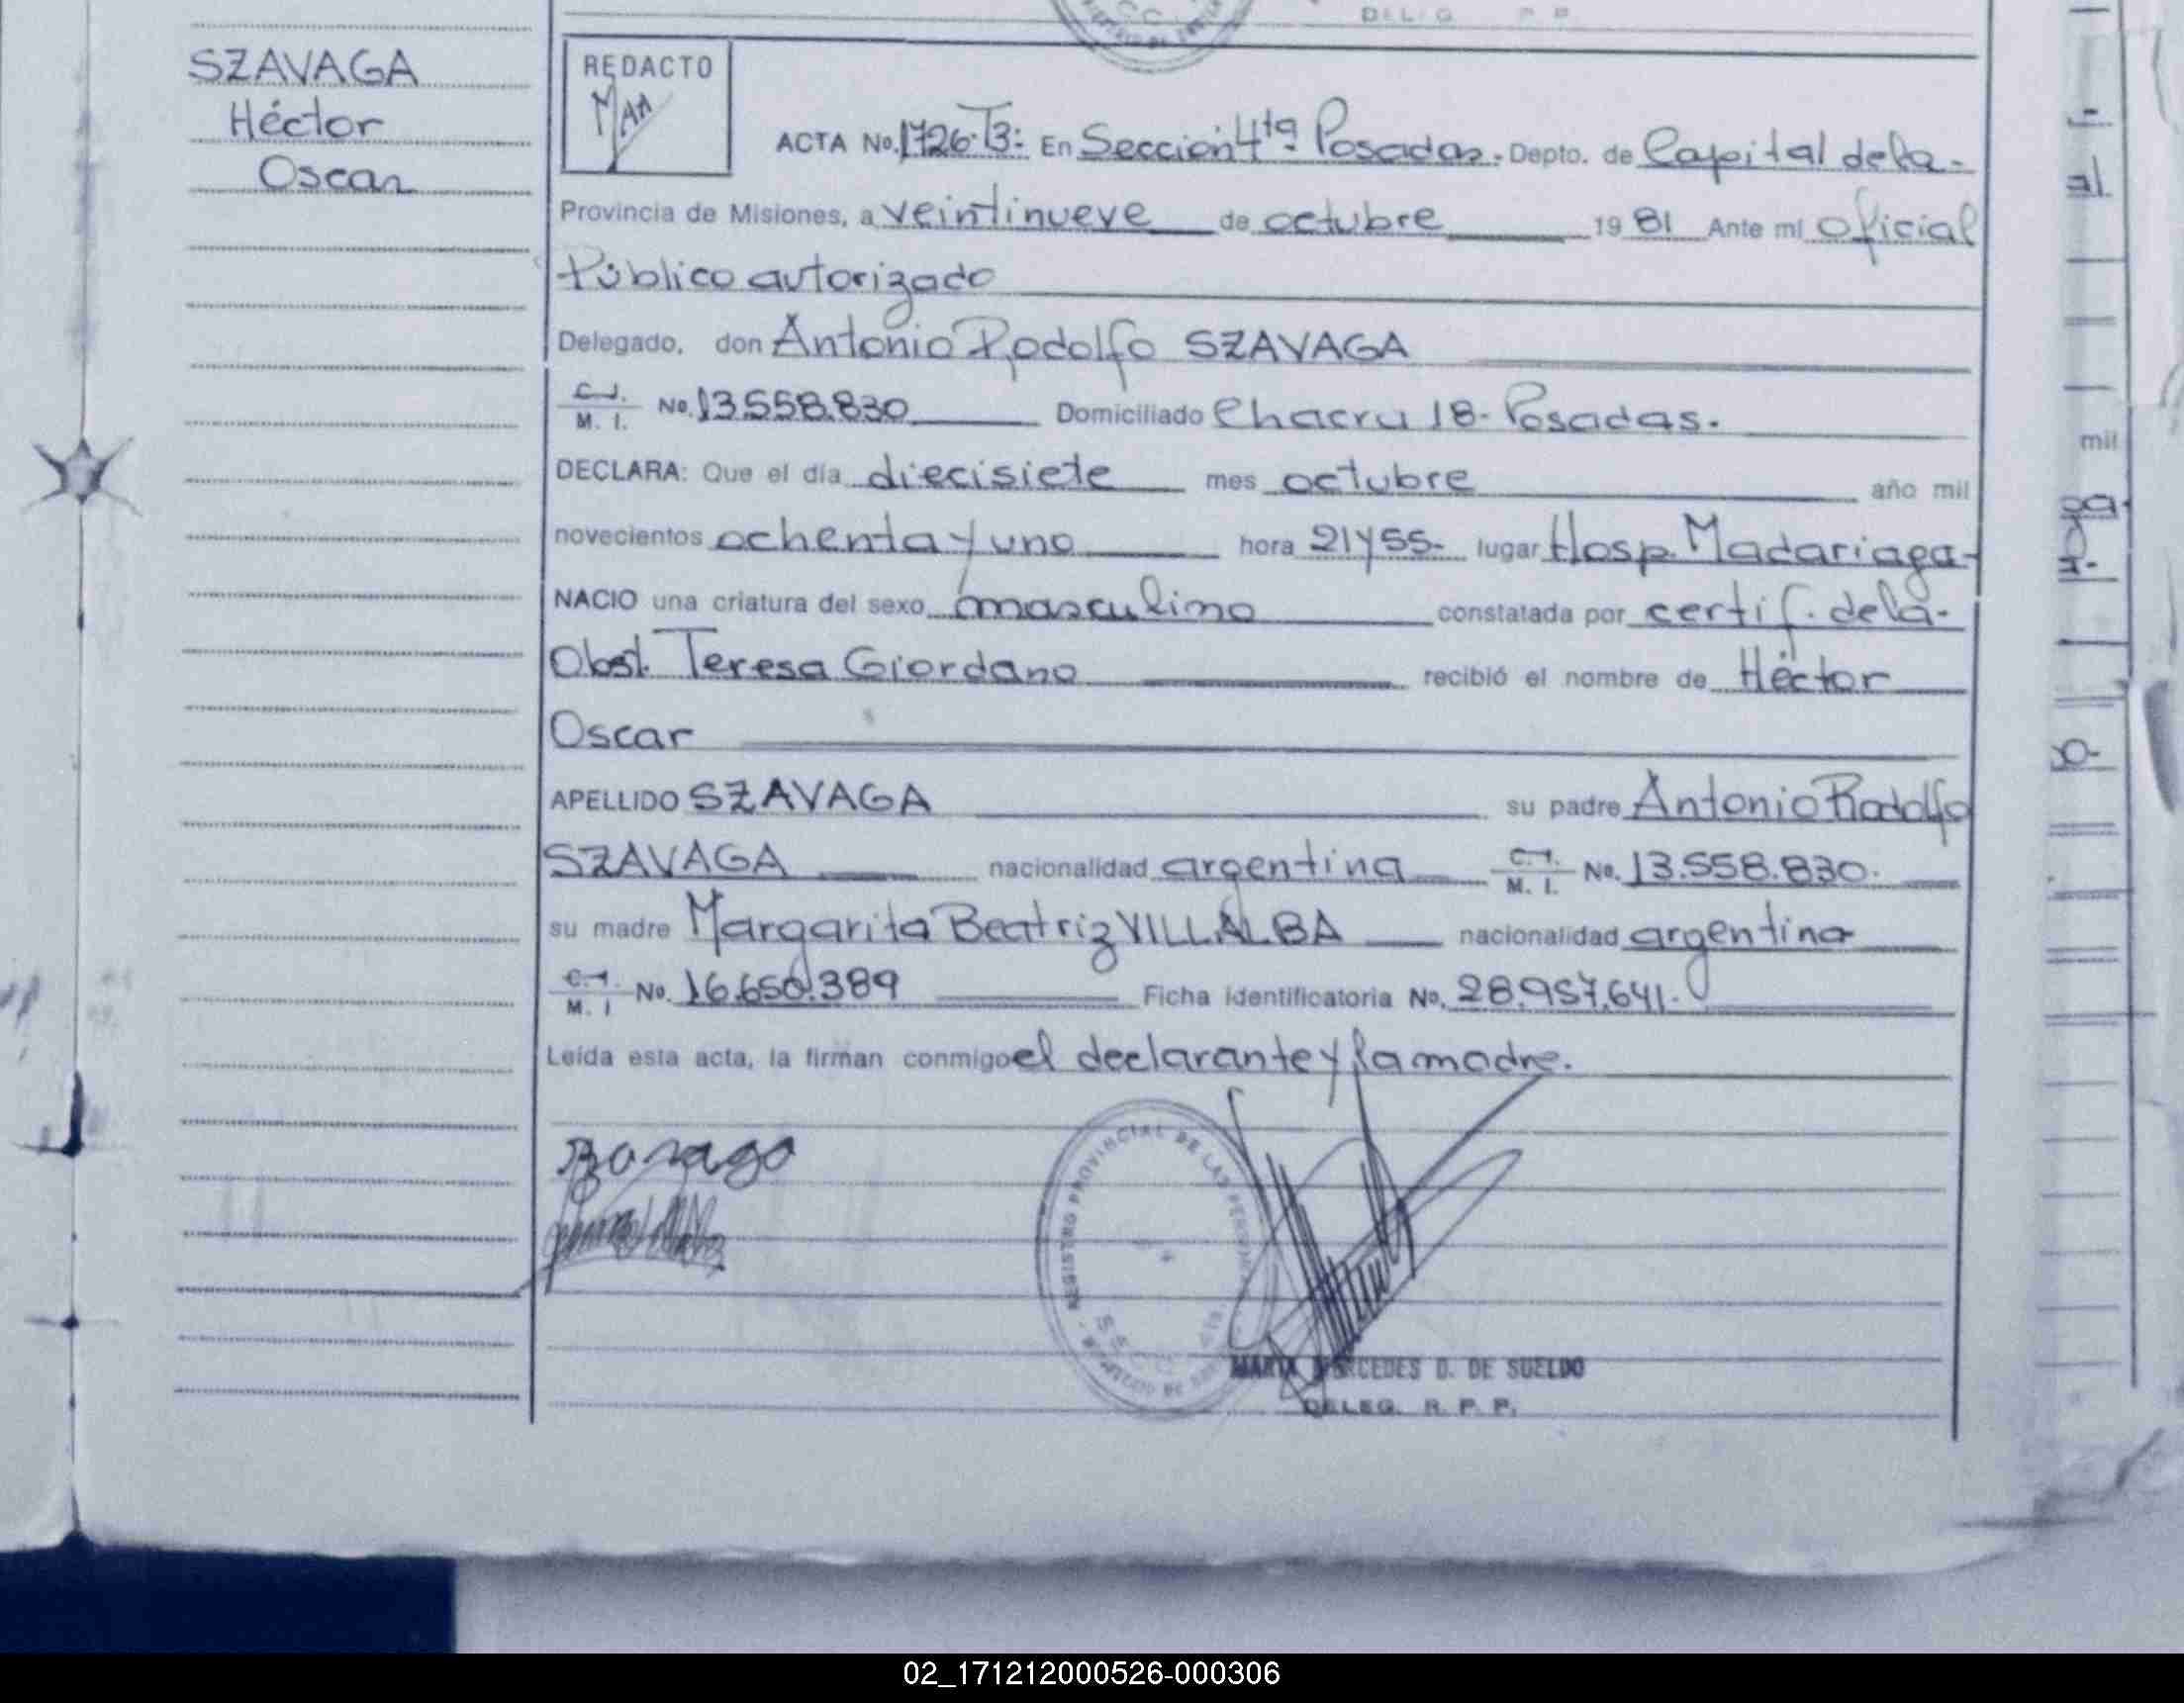 DELEG. R. P.
SZAVAGA
Héctor
Oscar
REDACTO
ACTA No. 1726-T3- En Sección 4ta Posadas. Depto. de Capital de la-
Provincia de Misiones, a veintinueve de octubre 1981 Ante mi oficial
Público autorizado
Delegado, don Antonio Rodolfo SZAVAGA
C.I.
M. I. No. 13.558.830 Domiciliado Chacra 18- Posadas.
DECLARA: Que el día diecisiete mes octubre año mil
novecientos ochenta y uno hora 21 y 55- lugar Hosp. Madariaga-
NACIO una criatura del sexo masculino constatada por certif. de la-
Obst. Teresa Giordano recibió el nombre de Héctor
Oscar
APELLIDO SZAVAGA su padre Antonio Rodolfo
SZAVAGA nacionalidad argentina C.I. M. I. No. 13.558.830.
su madre Margarita Beatriz VILLALBA nacionalidad argentina
C.I.
M. I No. 16.650.389 Ficha identificatoria No. 28.957.641.
Leída esta acta, la firman conmigo el declarante y la madre.
REGISTRO PROVINCIAL DE LAS PERSONAS
MARIA MERCEDES D. DE SUELDO
DELEG. R. P. P.
mil
02_171212000526-000306